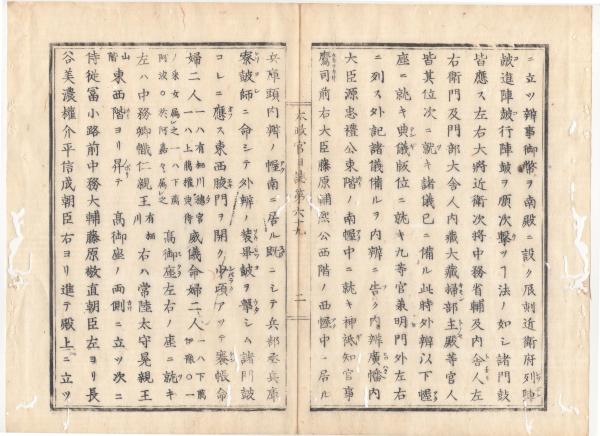 ニ立ツ辨事御幣ヲ南殿ニ設ク辰刻近衛府列陣
皷進陣皷行陣皷ヲ順次撃ツ丁法ノ如シ諸門鼓
皆應ス左右大將近衛次將中務省輔及内舎人左
右衛門及門部大舎人内藏大藏掃部主殿等官人
皆其位次ニ就キ諸儀已ニ備ル此時外辨以下幄
座ニ就キ典儀版位ニ就キ九等官兼明門外左右
ニ列ス外記諸儀備ルヲ内辨ニ告ク内辨廣幡内
大臣源忠禮公東階ノ南幄中ニ就キ神祇知官事
鷹司前右大臣藤原輔煕公西階ノ西幄中ニ居ル
太政官日誌第六十九
二
兵庫頭内辨ノ幄南ニ居ル既ニシテ兵部丞兵庫
寮皷師ニ命シテ外辨ノ装畢皷ヲ撃シム諸門鼓
コレニ應ス東西腋門ヲ開ク中頃アツテ褰帳命
婦二人 威儀命婦二人
高御座左右ノ座ニ就キ
左ハ中務卿幟仁親王 有栖川 右ハ常陸太守晃親王
山階 東西階ヨリ昇テ 高御座ノ兩側ニ立ツ次ニ
侍從冨小路前中務大輔藤原敬直朝臣左ヨリ長
谷美濃權介平信成朝臣右ヨリ進テ殿上ニ立ツ